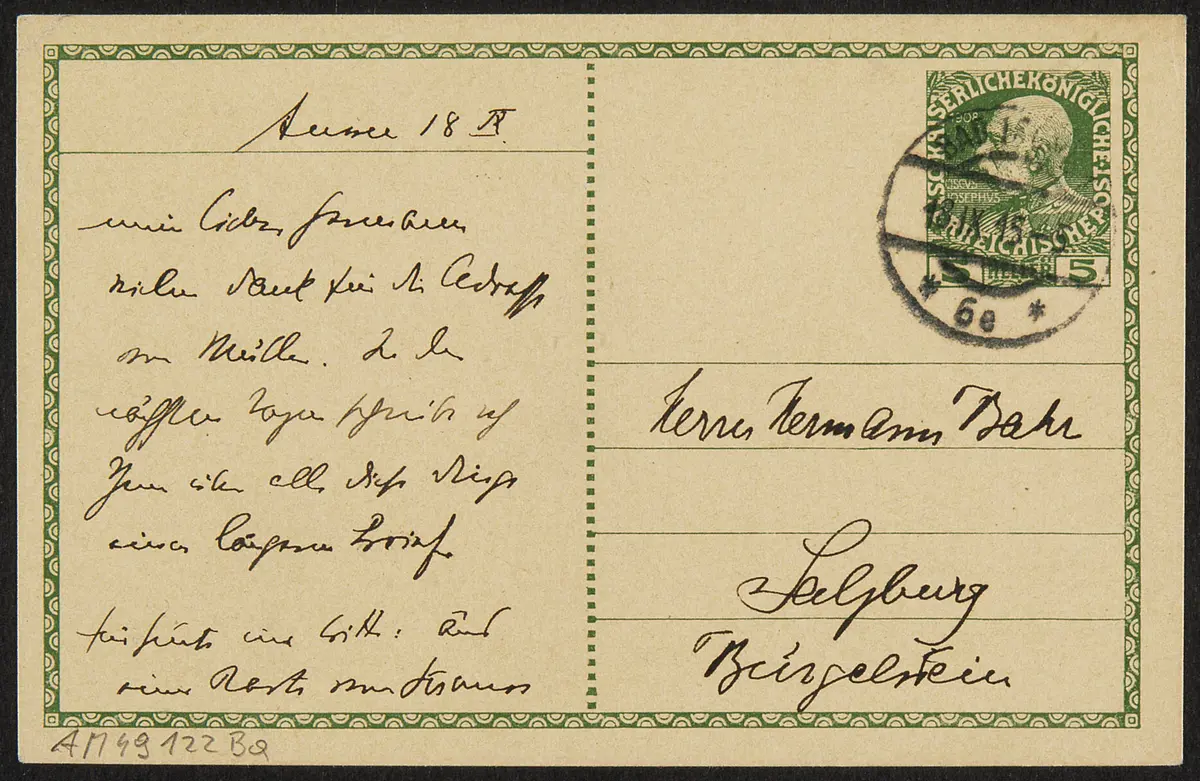 Aussee 18 IX.
mein lieber Hermann
vielen Dank für die Adresse
von Müller. In den
nächsten Tagen schreibe ich
Ihnen über alle diese Dinge
einen längeren Brief.
für heute eine Bitte:
eine Karte von
KAISERLICHE KÖNIGLICHE
1908
JOSEPHUS
ÖSTERREICHISCHE POST
5 HELLER 5
18.IX.15
* 6e *
Herrn Hermann Bahr
Salzburg
Bürgelstein
AM 49 122 Ba